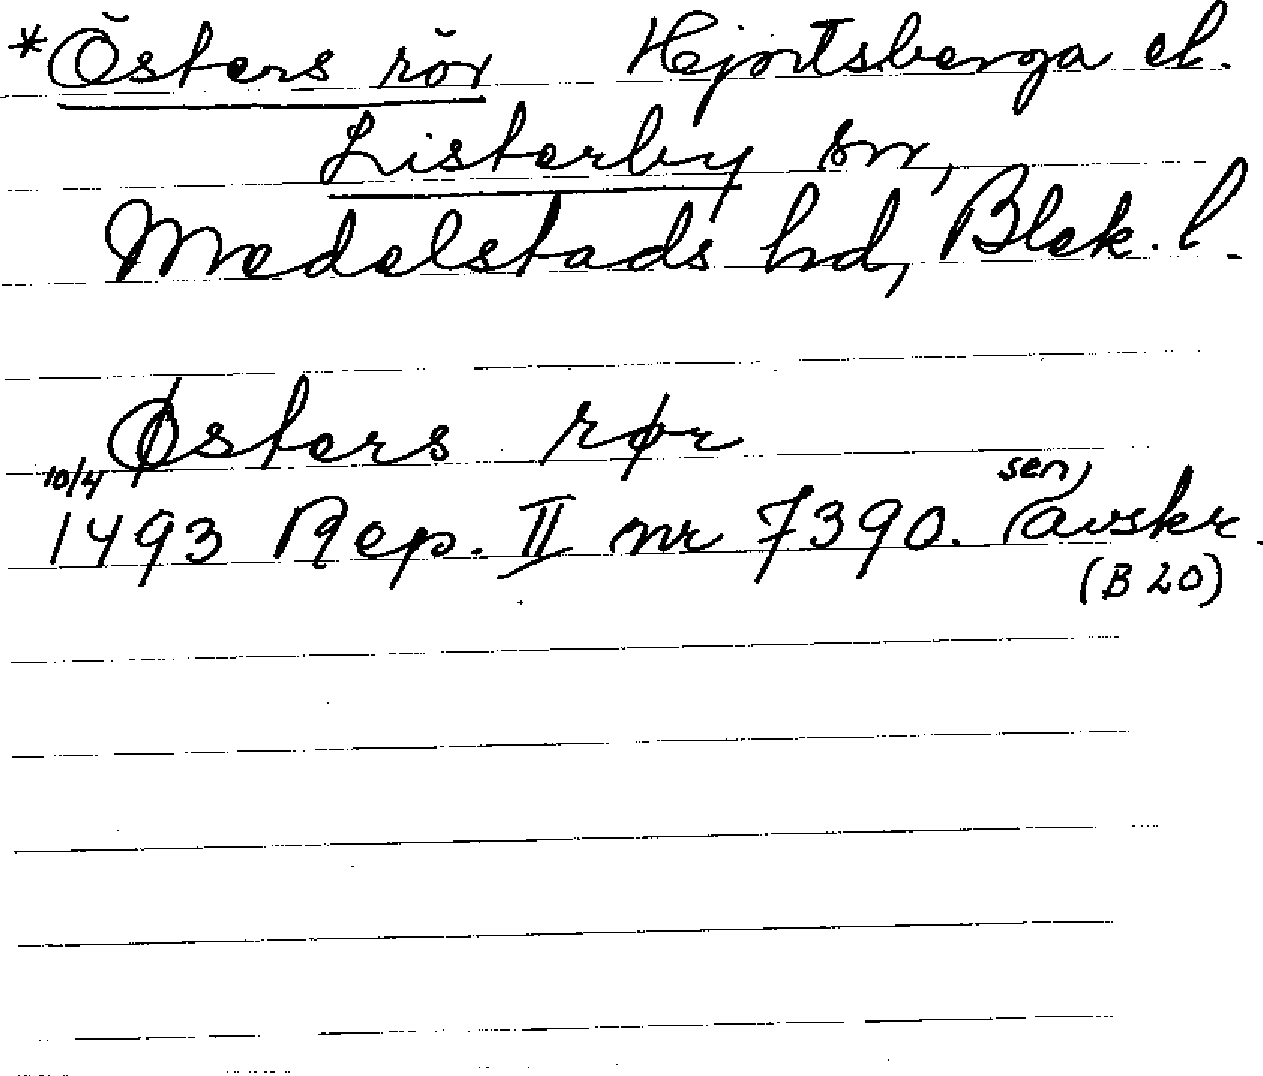 *Östers rör Hjortsberga el.
Listerby sn,
Medelstads hd, Blek. l.
Østers rør
10/4 1493 Rep. II nr 7390. sen, avskr.
(B 20)